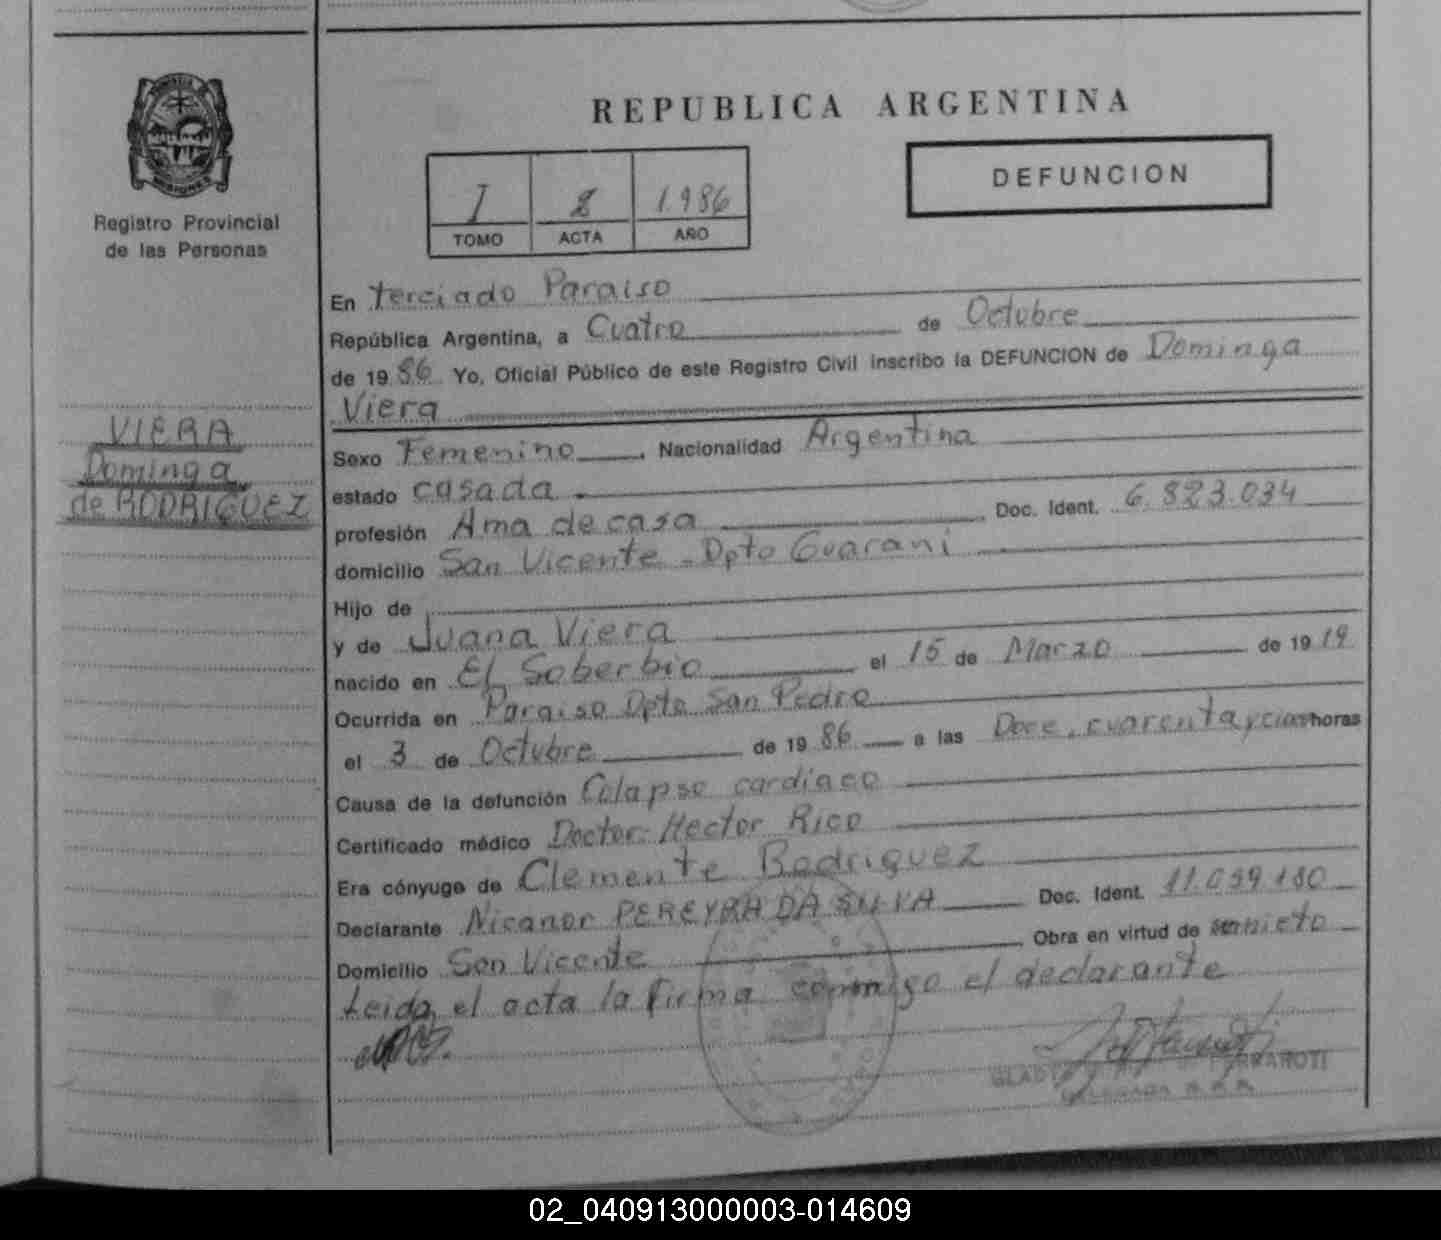 PROVINCIA DE
MISIONES
Registro Provincial
de las Personas
VIERA
Dominga
de RODRIGUEZ
REPUBLICA ARGENTINA
I 8 1.986
TOMO ACTA AÑO
DEFUNCION
En terciado Paraiso
República Argentina, a Cuatro de Octubre
de 1986 Yo, Oficial Público de este Registro Civil inscribo la DEFUNCION de Dominga
Viera
Sexo Femenino, Nacionalidad Argentina
estado casada
profesión Ama de casa Doc. Ident. 6.823.034
domicilio San Vicente - Dpto Guarani
Hijo de
y de Juana Viera
nacido en El Soberbio el 15 de Marzo de 1919
Ocurrida en Paraiso Dpto San Pedro
el 3 de Octubre de 1986 a las Doce, cuarenta y cinco horas
Causa de la defunción Colapso cardiaco
Certificado médico Doctor: Hector Rico
Era cónyuge de Clemente Rodriguez
Declarante Nicanor PEREYRA DA SILVA Doc. Ident. 11.039.180
Domicilio San Vicente Obra en virtud de nieto
Leida el acta la firma conmigo el declarante
02_040913000003-014609